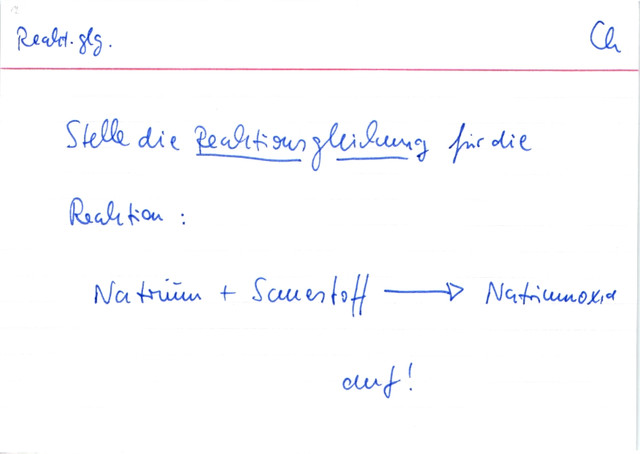 Reakt.glg.
Ch
Stelle die Reaktionsgleichung für die
Reaktion :
Natrium + Sauerstoff → Natriumoxid
auf!